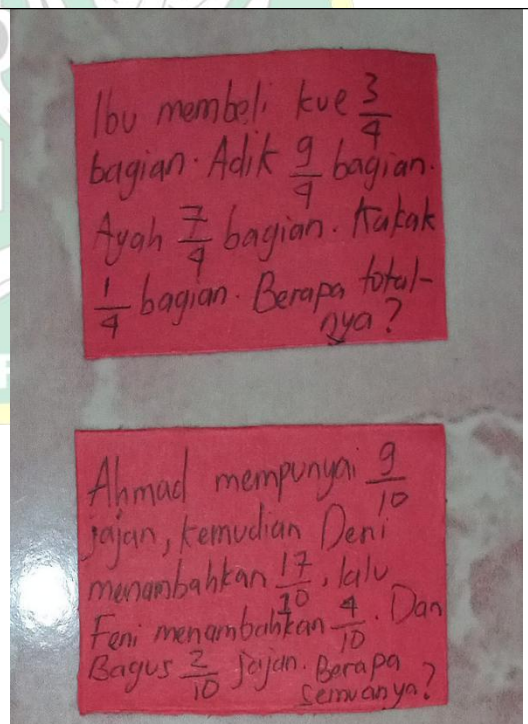 Ibu membeli kue 3/4
bagian. Adik 9/4 bagian.
Ayah 7/4 bagian. Kakak
1/4 bagian. Berapa total-
nya?
Ahmad mempunyai 9/10
jajan, kemudian Deni
menambahkan 17/10, lalu
Feni menambahkan 4/10. Dan
Bagus 2/10 jajan. Berapa
semuanya?